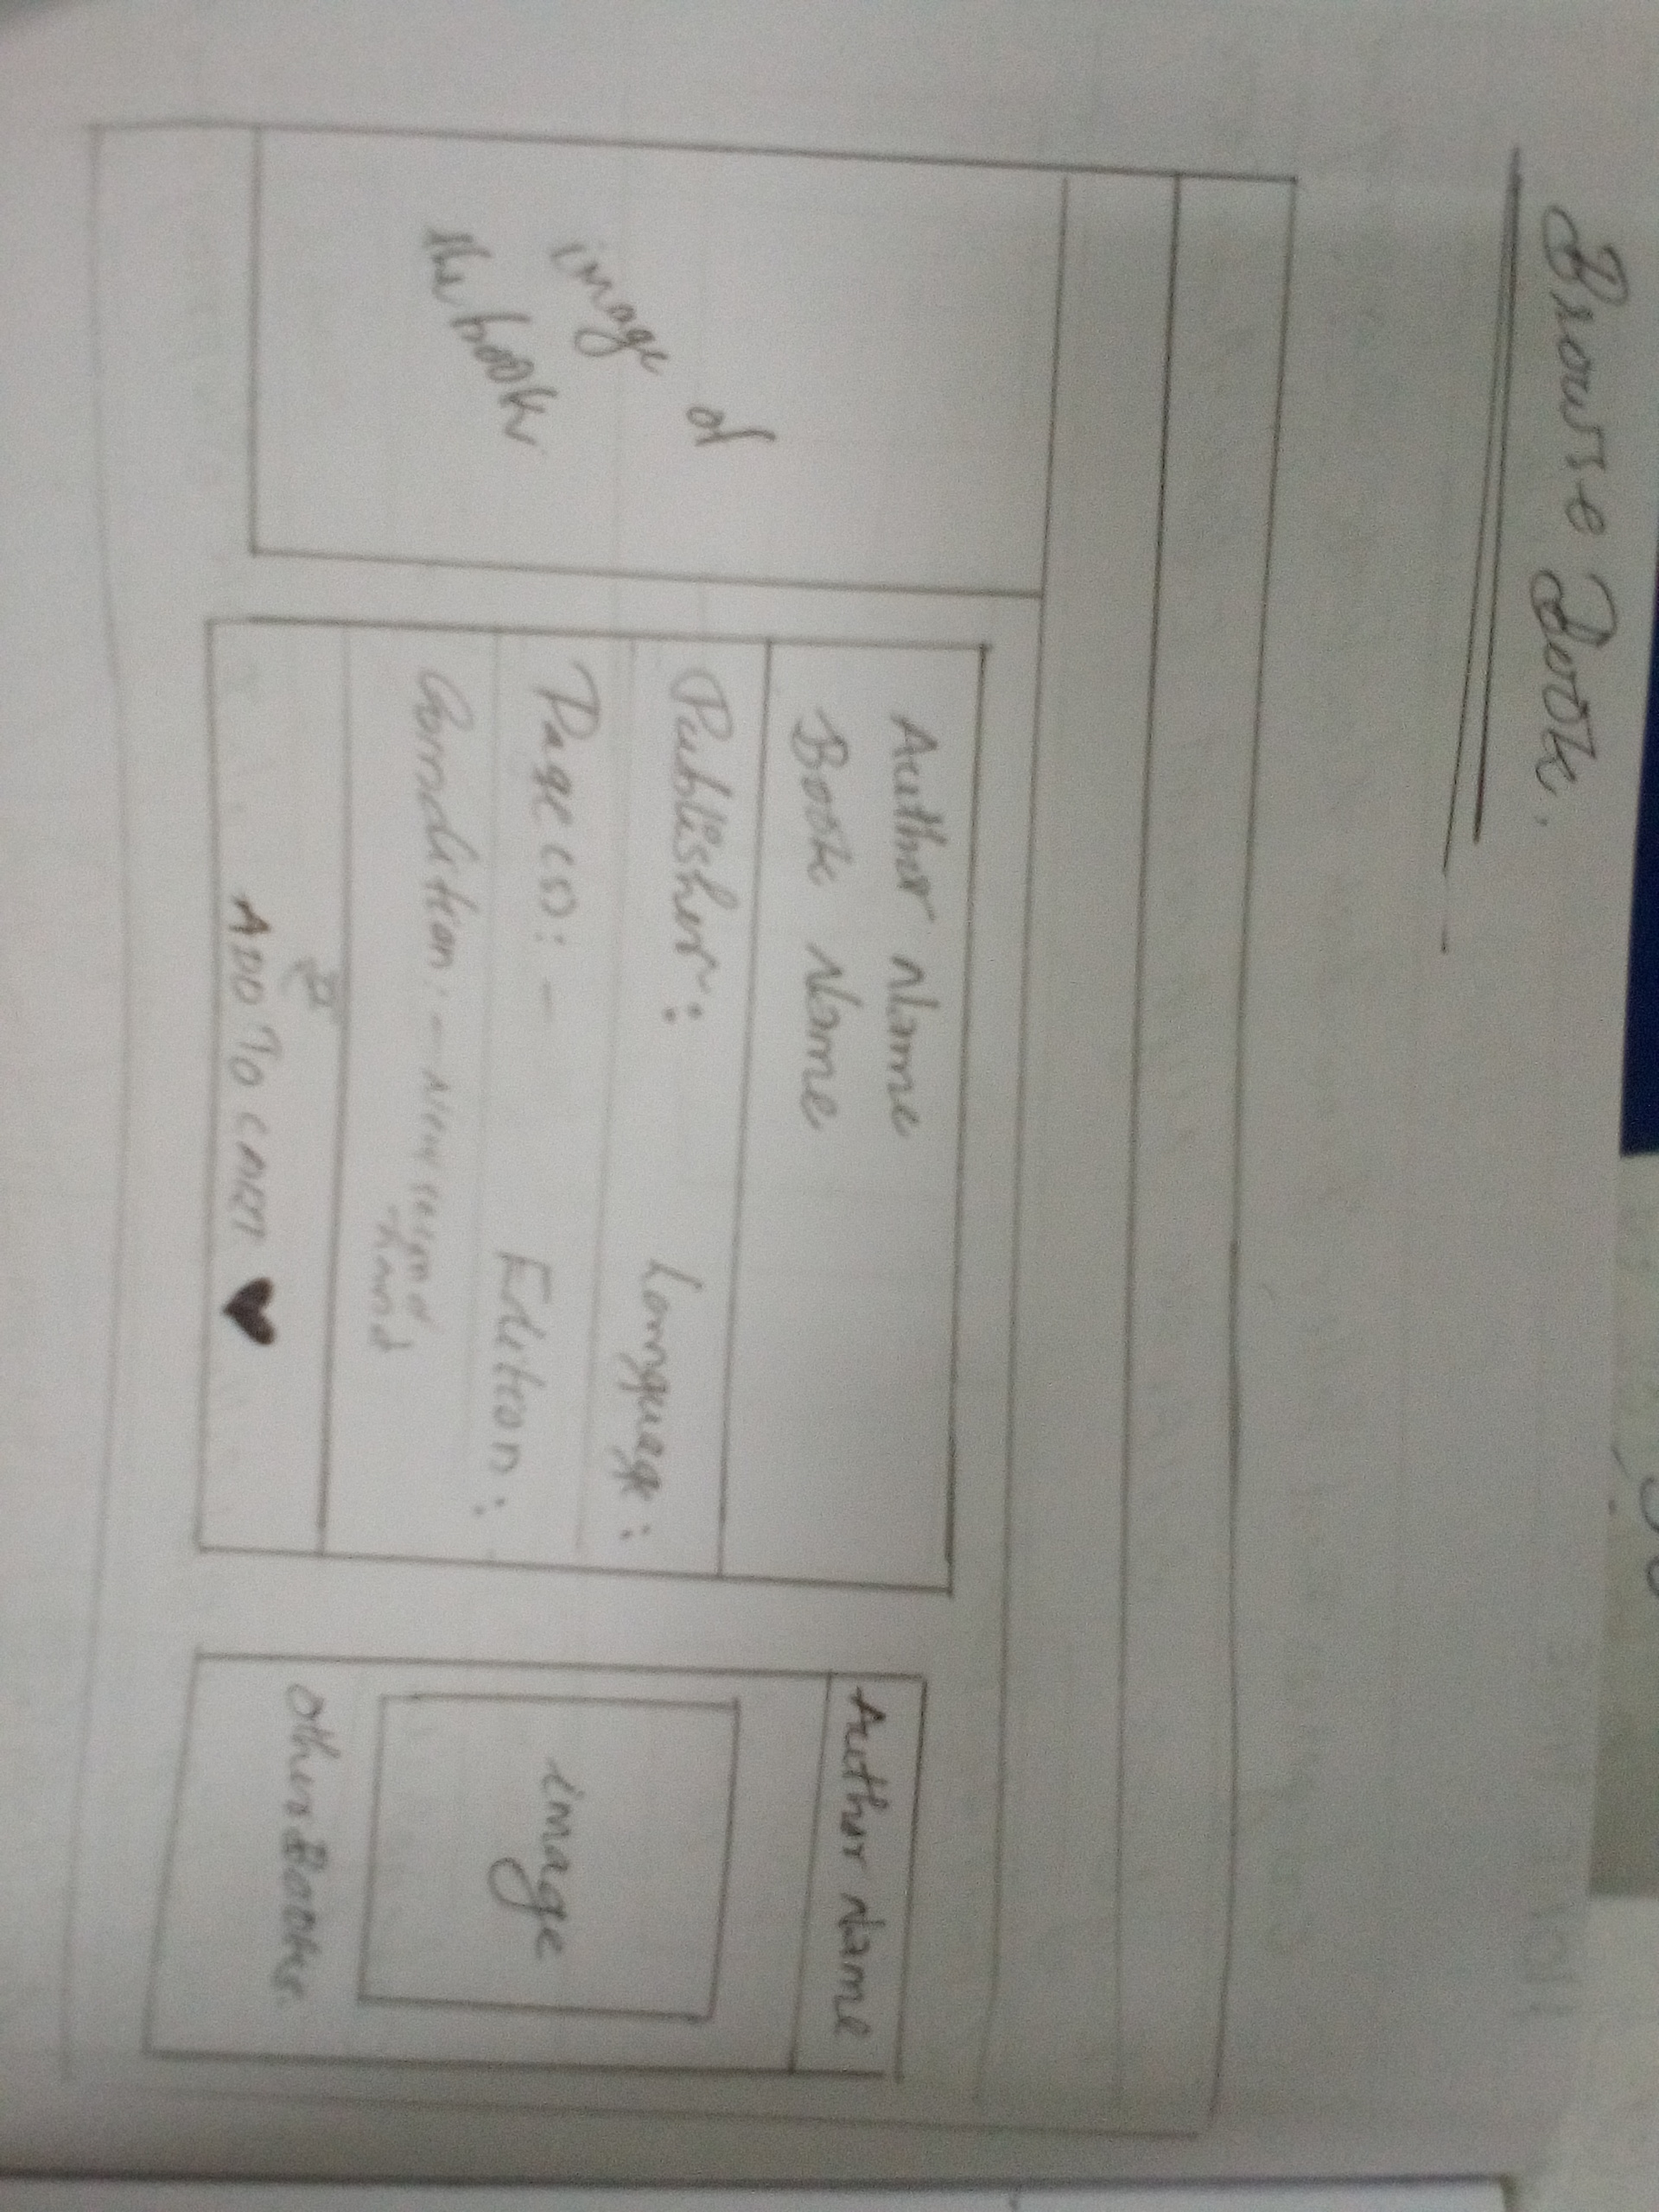 Browse Book.
image of
the book
Author Name
Book Name
Publisher: Language:
Page(s): – Edition:
Condition: – New second
hand
ADD TO CART ♥
Author Name
image
Other Books.